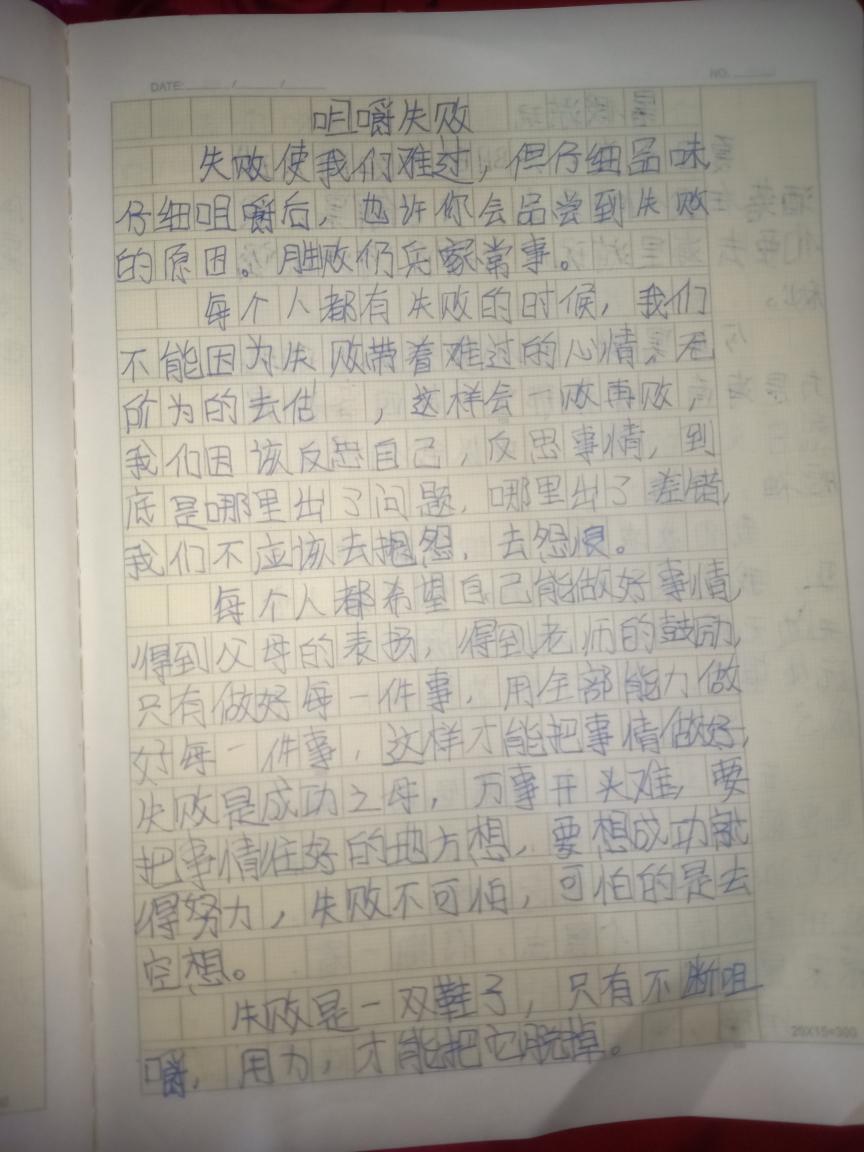 DATE: / /
NO.
咀嚼失败
失败使我们难过，但仔细品味
仔细咀嚼后，也许你会品尝到失败
的原因。胜败仍兵家常事。
每个人都有失败的时候，我们
不能因为失败带着难过的心情，无
阶为的去估，这样会一败再败，
我们因该反思自己，反思事情，到
底是哪里出了问题，哪里出了差错，
我们不应该去抱怨，去怨恨。
每个人都希望自己能做好事情，
得到父母的表扬，得到老师的鼓励，
只有做好每一件事，用全部能力做
好每一件事，这样才能把事情做好，
失败是成功之母，万事开头难，要
把事情往好的地方想，要想成功就
得努力，失败不可怕，可怕的是去
空想。
失败是一双鞋子，只有不断咀
嚼，用力，才能把它脱掉。
20X15=300